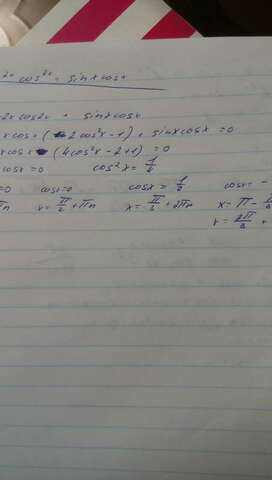 2x cos2x = sinx cosx
2x cos2x + sinx cosx
x cosx (2cos²x-1) + sinx cosx = 0
x cosx (4cos²x-2+1) = 0
cosx = 0 cos²x = 1/4
=0 cosx=0 cosx = 1/2 cosx= -
πn x= π/2 +πn x= π/3 +2πn x= π -
x= 2π/3 +